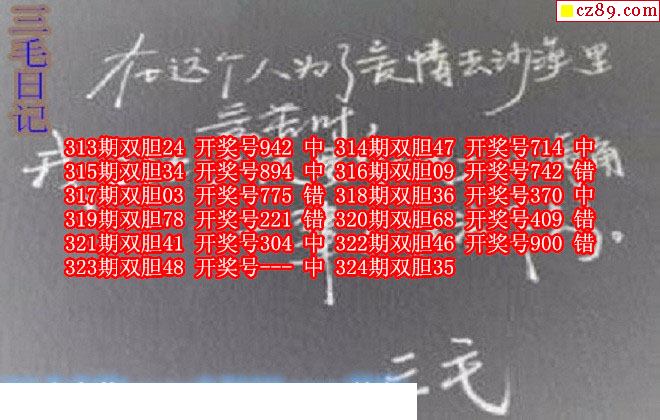 cz89.com
三毛日记
在这个人为了爱情去沙漠里
313期双胆24 开奖号942 中 314期双胆47 开奖号714 中
315期双胆34 开奖号894 中 316期双胆09 开奖号742 错
317期双胆03 开奖号775 错 318期双胆36 开奖号370 中
319期双胆78 开奖号221 错 320期双胆68 开奖号409 错
321期双胆41 开奖号304 中 322期双胆46 开奖号900 错
323期双胆48 开奖号--- 中 324期双胆35
三毛